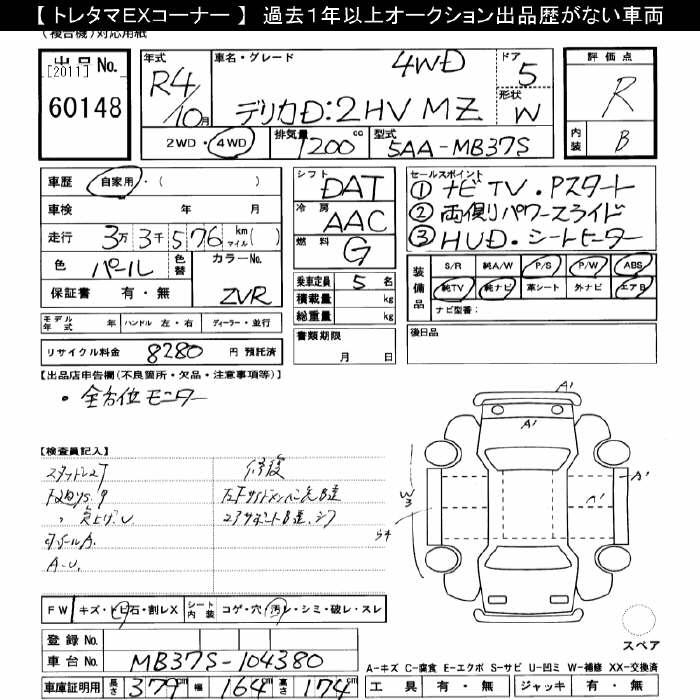 【 トレタマEXコーナー 】 過去1年以上オークション出品歴がない車両
(複合機)対応用紙
出品 No.
[2011]
60148
年式
R4/10月
車名・グレード
4WD
デリカD:2HV MZ
ドア
5
形状
W
評価点
R
内装
B
2WD・4WD
排気量
1200cc
型式
5AA-MB37S
車歴 自家用・( )
車検 年 月
走行 3万3千576 km マイル( )
色 パール 色替 カラーNo.
ZVR
保証書 有・無
シフト
DAT
冷房
AAC
燃料
G
乗車定員 5名
積載量 kg
総重量 kg
書類期限
月 日
セールスポイント
① ナビTV・Pスタート
② 両側パワースライド
③ HUD・シートヒーター
装備品
S/R 純A/W P/S P/W ABS
純TV 純ナビ 革シート 外ナビ エアB
ナビ型番:
後日品
モデル年式 年 ハンドル 左・右 ディーラー・並行
リサイクル料金 8280 円 預託済
【出品店申告欄(不良箇所・欠品・注意事項等)】
・全方位モニター
【検査員記入】
修復
A-U.
A'
A'
A'
W3
FW キズ・トビ石・割レX シート内装 コゲ・穴・汚レ・シミ・破レ・スレ
登録 No.
車台 No. MB37S-104380
車庫証明用 長さ 379cm 幅 164cm 高さ 174cm
スペア
A-キズ C-腐食 E-エクボ S-サビ U-凹ミ W-補修 XX-交換済
工具 有・無 ジャッキ 有・無